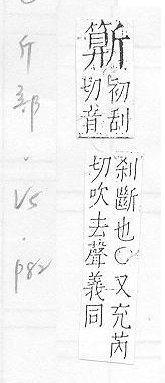 初刮
切音
刹斷也〇又充芮
切吹去聲義同
斤部.V5.p82